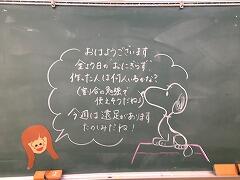 おはようございます
金よう日の おにぎらず、
作った人は何人いるかな？
(割り合の勉強で
使えそうだね♪)
今週は遠足があります
たのしみだね！